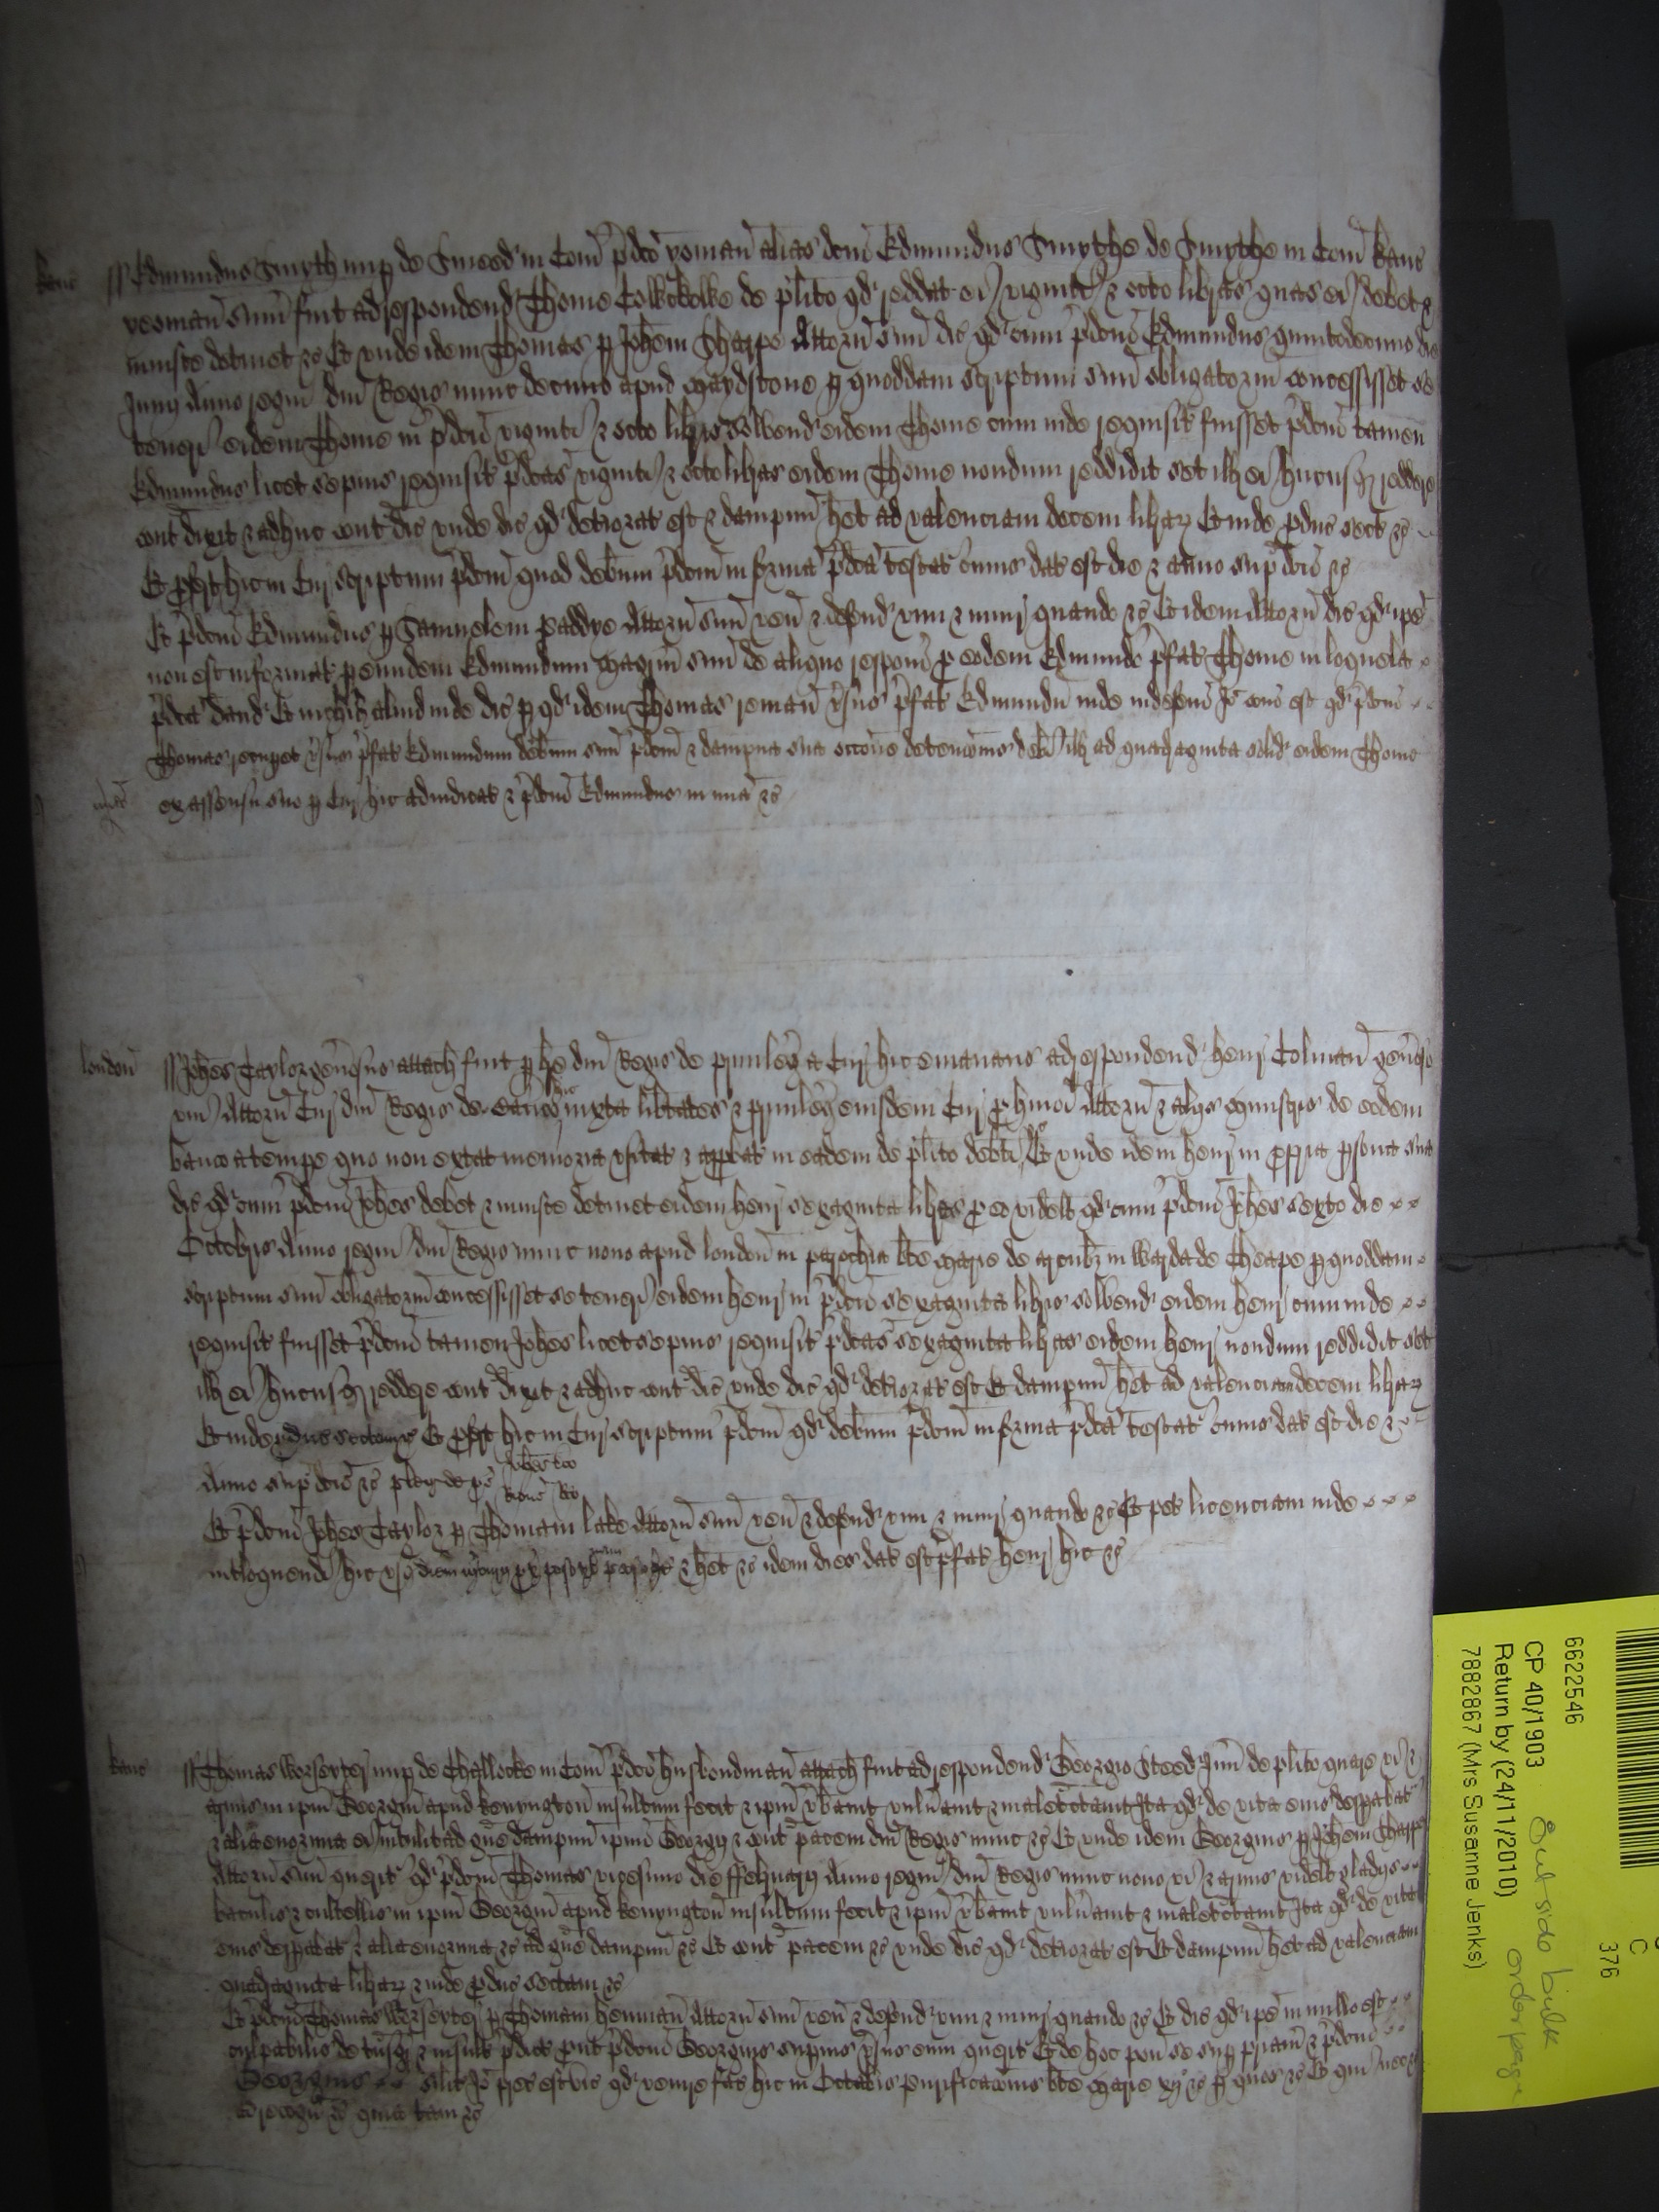 kanc ss Edmundus Smyth nup de Smeed in Com pdco yoman alias dcm Edmundus Smythe de Smythe in Com kanc
yeoman sum fuit ad respondend Thome de plito qd reddat ei viginti & octo libras quas ei debet &
iniuste detinet &c Et unde idem Thomas p Johem Sharpe Attorn suu dic qd cum pdcus Edmundus quintodecimo die
Junij Anno regni dni Regis nunc decimo apud maydstone p quoddam scriptum suu obligatoriu concessisset se
teneri eidem Thome in pdcis viginti & octo libris solvend eidem Thome cum inde requisit fuisset pdcus tamen
Edmundus licet sepius requisit pdcas viginti & octo libras eidem Thome nondum reddidit set ill ei hucusq reddere
cont dixit & adhuc cont dic unde dic qd deteriorat est & dampnu het ad valenciam decem librar Et inde pduc sect &c
Et pfert hic in Cur scriptum pdcm quod debitum pdcm in forma pdca testat cuius dat est die & anno supdcis &c
Et pdcus Edmundus p Samuelem paddye Attorn suu ven & defend vim & iniur quando &c Et idem Attorn dic qd ipe
non est informat p eundem Edmundum magrm suu de aliquo respons p eodem Edmundo pfat Thome in loquela
pdca dand Et nichil aliud inde dic p qd idem Thomas reman vsus pfat Edmundu inde indefens Io cons est qd pdcus
Thomas recuperet vsus pfat Edmundum debitum suu pdcm & dampna sua occone detencionis debi ill ad quadraginta solid eidem Thome
ex assensu suo p Cur hic adiudicat & pdcus Edmundus in mia &c
london ss Johes Taylor generosus attach fuit p bre dni Regis de privileg a Cur hic emanans ad respondend henr Colman generoso
uni Attorn Cur dni Regis de banco hic iuxta libtates & privileg eiusdem Cur p huiusmodi Attorn & alijs ministris de eodem
banco a tempe quo non extat memoria usitat & approbat in eadem de plito debti &c Et unde idem henr in propria psona sua
dic qd cum pdcus Johes debet & iniuste detinet eidem henr sexaginta libras p eo videlt qd cum pdcus Johes sexto die
Octobris Anno regni dni Regis nunc nono apud london in parochia bte marie de arcubz in warda de Cheape p quoddam
scriptum suu obligatoriu concessisset se teneri eidem henr in pdcis sexaginta libris solvend eidem henr cum inde
requisit fuisset pdcus tamen Johes licet sepius requisit pdcas sexaginta libras eidem henr nondum reddidit set
ill ei hucusq reddere cont dixit & adhuc cont dic unde dic qd deteriorat est Et dampnu het ad valenciam decem librar
Et inde pduc sectam &c Et pfert hic in Cur scriptum pdcm qd debitum pdcm in forma pdca testat cuius dat est die &
Anno supdcis &c pleg de ps Johes Doo Ricus Roo
Et pdcus Johes Taylor p Thomam lake Attorn suu ven & defend vim & iniur quando &c Et pet licenciam inde
intloquend hic usq & het &c idem dies dat est pfat henr hic &c
kanc ss Thomas nup de Challocke in Com pdco husbondman attach fuit ad respondend Georgio Steed de plito quare vi &
armis in ipm Georgiu apud kenyngton insultum fecit & ipm vbavit vulnavit & maletctavit Ita qd de vita eius desperabat
& alia enormia ei intulit ad gve dampnu ipius Georgij & cont pacem dni Regis nunc &c Et unde idem Georgius p Johem Sharpe
Attorn suu querit qd pdcus Thomas vicesimo die ffebruarij Anno regni dni Regis nunc nono vi & armis videlt gladijs
baculis & cultellis in ipm Georgiu apud kenyngton insultum fecit & ipm vbavit vulnavit & maletctavit Ita qd de vita
eius desperabat & alia enormia &c ad gve dampnu &c Et cont pacem &c unde dic qd deteriorat est Et dampnu het ad valenciam
quadraginta librar & inde pduc sectam &c
Et pdcus Thomas p Thomam henman Attorn suu ven & defend vim & iniur quando &c Et dic qd ipe in nullo est
culpabilis de tnsgr & insult pdict put pdcus Georgius supius vsus eum querit Et de hoc pon se sup priam & pdcus
Georgius silit Io prec est vic qd venire fac hic in Octabis purificacionis bte marie xij &c p quos &c Et qui nec &c
ad recogn &c quia tam &c
6622546
CP 40/1903
Return by (24/11/2010)
7882867 (Mrs Susanne Jenks)
C
376
Outside bulk
order page